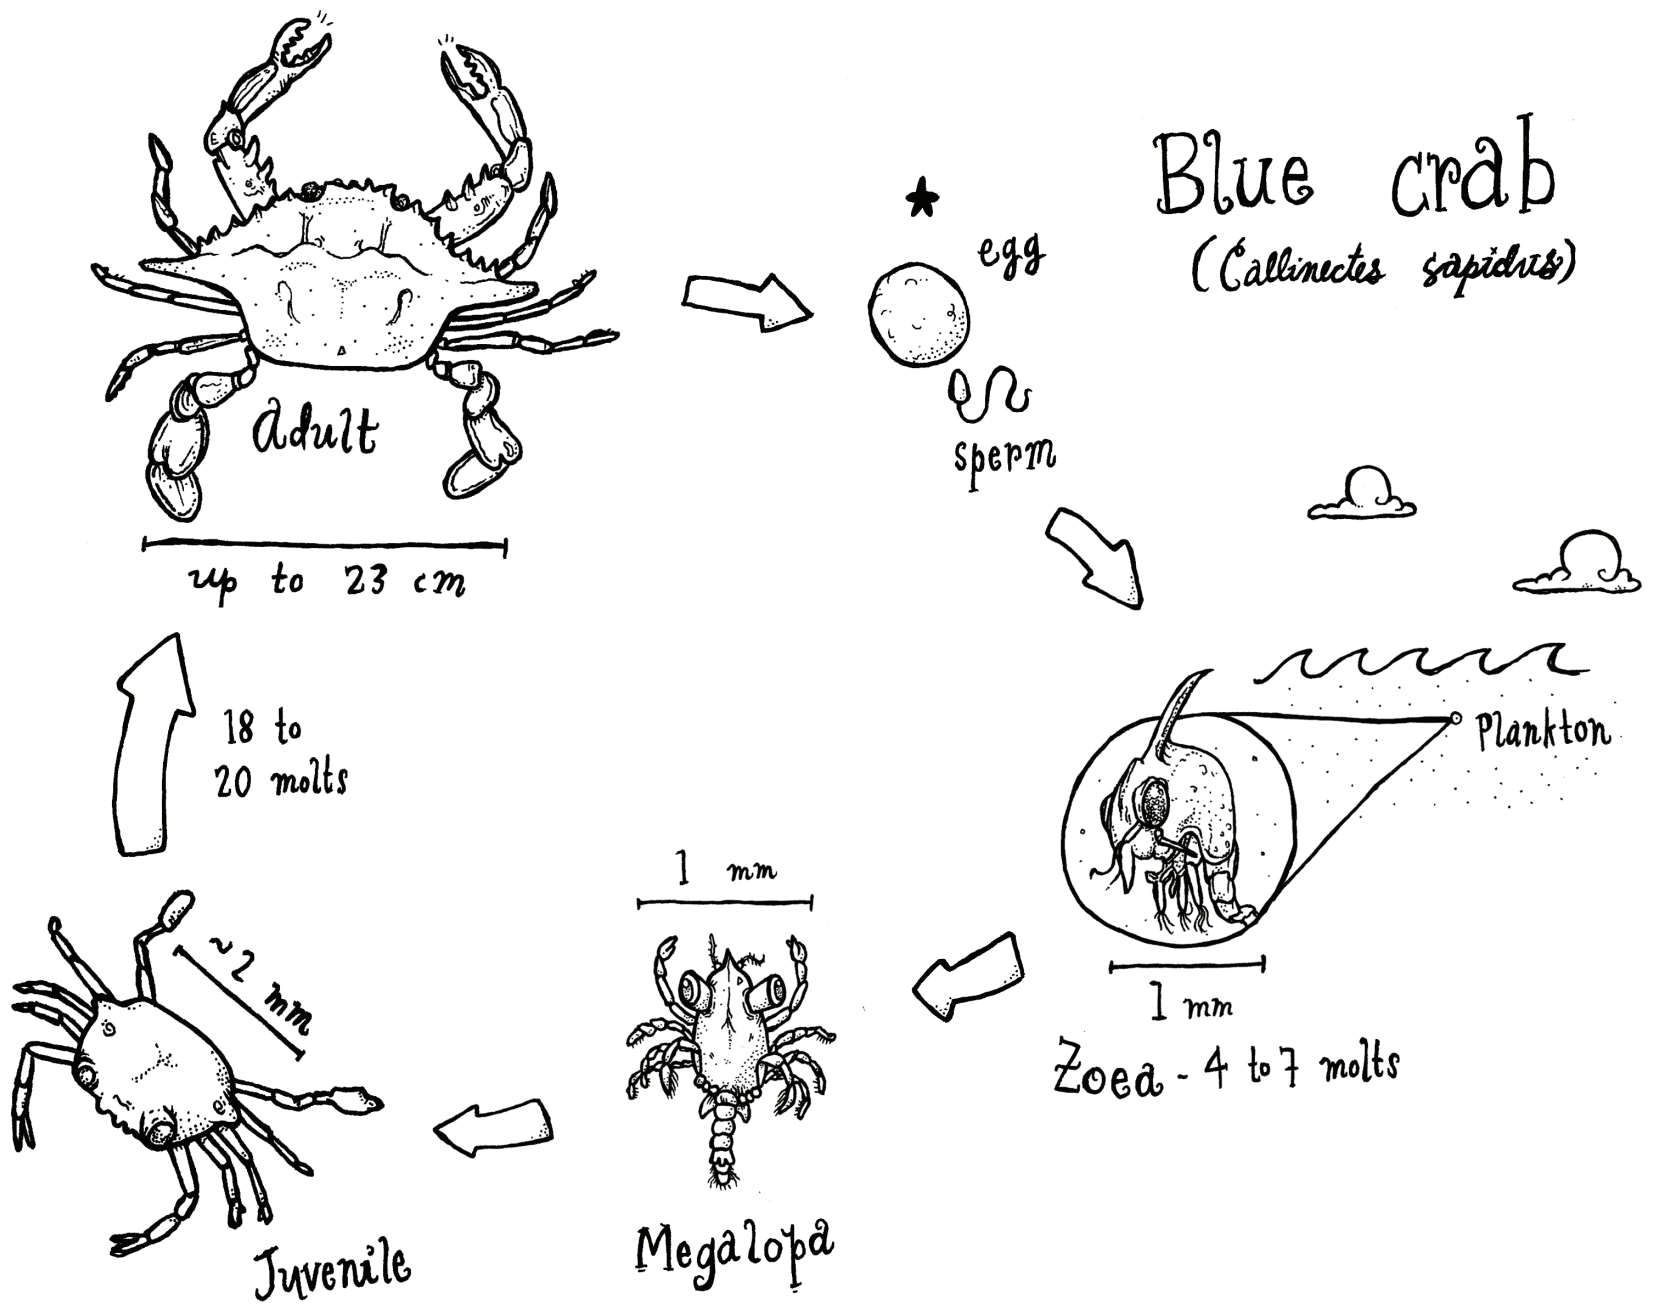 Blue crab
(Callinectes sapidus)
egg
sperm
Adult
up to 23 cm
Plankton
1 mm
Zoea - 4 to 7 molts
1 mm
Megalopa
~2 mm
Juvenile
18 to
20 molts